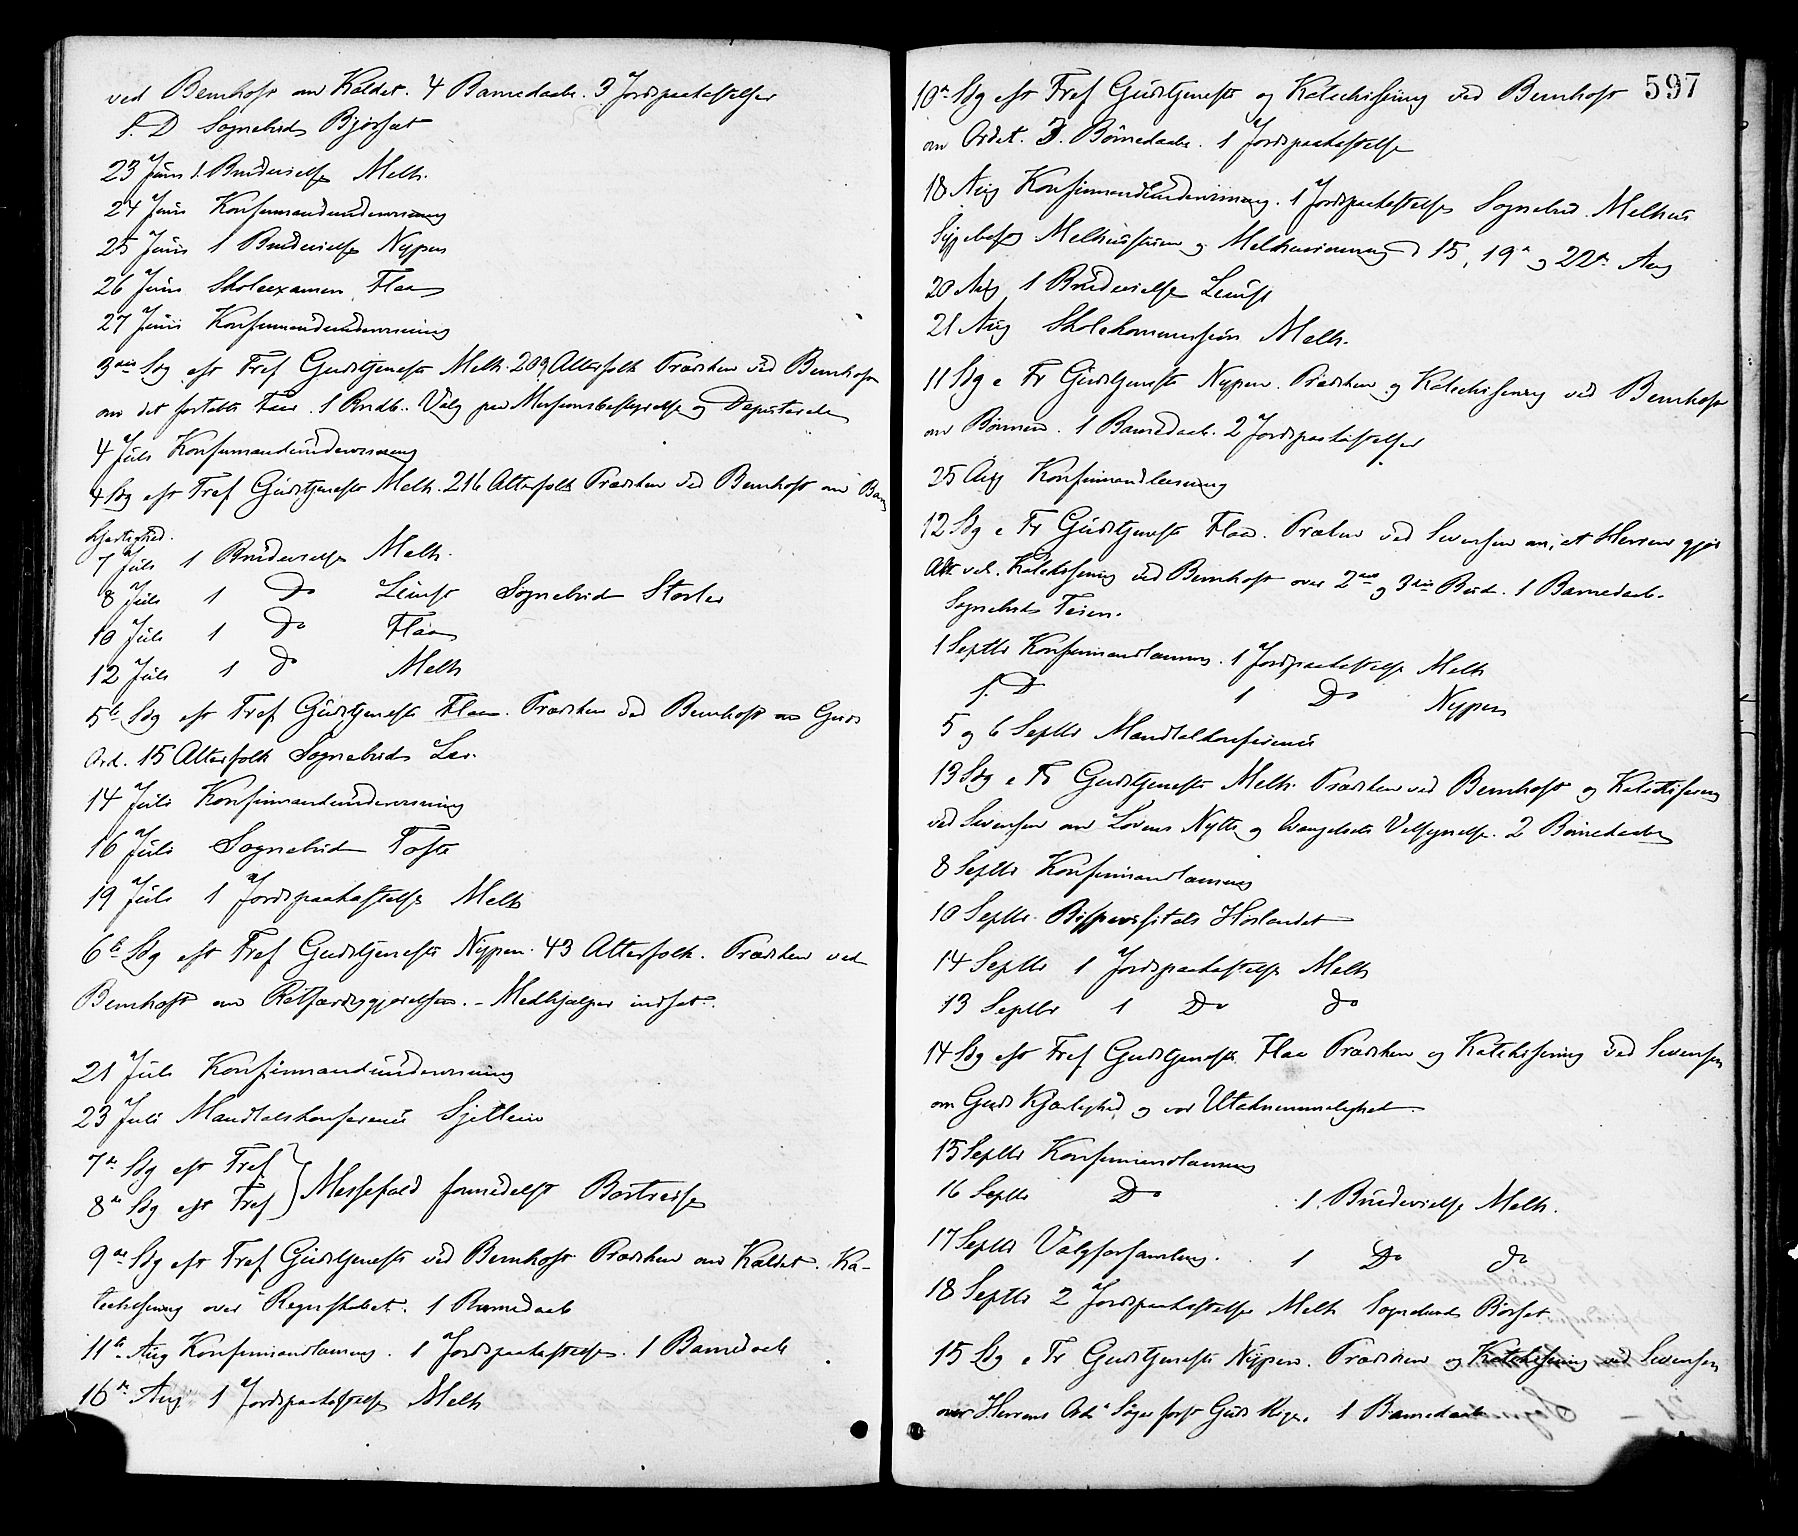 ved Bernhoft om Kaldet. 4 Barnedaab. 3 Jordspaakastelser
S. D Sognebud Bjørset
23 Juni 1. Brudevielse Melh.
24 Juni Konfirmandundervisning
25 Juni 1 Brudevielse Nypen
26 Juni Skoleexamen Flaa
27 Juni Konfirmandundervisning
3die Sdg eft Tref Gudstjeneste Melh. 203 Alterfolk Prædiken ved Bernhoft
om det fortabte Faar. 1 Brndb. Valg paa Missionsbestyrelse og Deputerede
4 Juli Konfirmandundervisning
4 Sdg eft Tref Gudstjeneste Melh. 216 Alterfolk Prædiken ved Bernhoft om
Kjærlighed.
7 Juli 1 Brudevielse Melh.
8 Juli 1 Do Leinst Sognebud Storler
10 Juli 1 Do Flaa
12 Juli 1 do Melh
5te Sdg eft Tref. Gudstjeneste Flaa. Prædiken ved Bernhoft om Guds
Ord. 15 Alterfolk Sognebud Ler.
14 Juli Konfirmandundervisning
16 Juli Sognebud Tofte
19 Juli 1 Jordspaakastelse Melh
6te Sdg eft Tref Gudstjeneste Nypen. 43 Alterfolk. Prædiken ved
Bernhoft om Retfærdiggjørelsen. - Medhjælper indsat.
21 Juli Konfirmandundervisning
23 Juli Mandtalskonference Sjetlein
7de Sdg eft Tref
8de Sdg eft Tref } Messefald formedelst Bortreise
9de Sdg eft Tref Gudstjeneste ved Bernhoft Prædiken om Kaldet. Ka-
techisering over Regnskabet. 1 Barnedaab
11te Aug Konfirmandlæsning. 1 Jordspaakastelse. 1 Barnedaab
16de Aug 1 Jordspaakastelse Melh
597
10de Sdg eft Tref Gudstjeneste og Katechisering ved Bernhoft
om Ordet. 3. Børnedaabe. 1 Jordspaakastelse
18 Aug Konfirmandundervisning. 1 Jordspaakastelse Sognebud. Melhus
Sygebesøg Melhus og 15, 19de og 22de Aug
20 Aug 1 Brudevielse Leinst
21 Aug Skolekommission Melh.
11 Sdg e Tr Gudstjeneste Nypen. Prædiken og Katechisering ved Bernhoft
om Bønnen. 1 Barnedaab. 2 Jordspaakastelser
25 Aug Konfirmandlæsning
12 Sdg e Tr Gudstjeneste Flaa. Prædiken ved Svensen om, at Herren gjør
Alt vel. Katechisering ved Bernhoft over 2det og 3die Bud. 1 Barnedaab.
Sognebud Teien.
1 Septbr Konfirmandlæsning. 1 Jordspaakastelse Melh
S. D 1 Do Nypen
5 og 6 Septbr Mandtalskonference
13 Sdg e Tr Gudstjeneste Melh. Prædiken ved Bernhoft og Katechisering
ved Svensen om Lovens Nytte og Evangeliets Velsignelse. 2 Børnedaabe
8 Septbr Konfirmandlæsning
10 Septbr. Bispevisitats Høilandet
14 Septbr 1 Jordspaakastelse Melh
13 Septbr 1 Do do
14 Sdg eft Tref Gudstjeneste Flaa Prædiken og Katechisering ved Svensen
om Guds Kjærlighed og vor Utaknemmelighed
15 Septbr Konfirmandlæsning
16 Septbr Do 1. Brudevielse Melh.
17 Septbr Valgforsamling. 1 Do do
18 Septbr 2 Jordspaakastelse Melh Sognebud Børset
15 Sdg e Tr Gudstjeneste Nypen. Prædiken og Katechisering ved Svensen
over Herrens Ord "Søger først Guds Rige. 1 Barnedaab